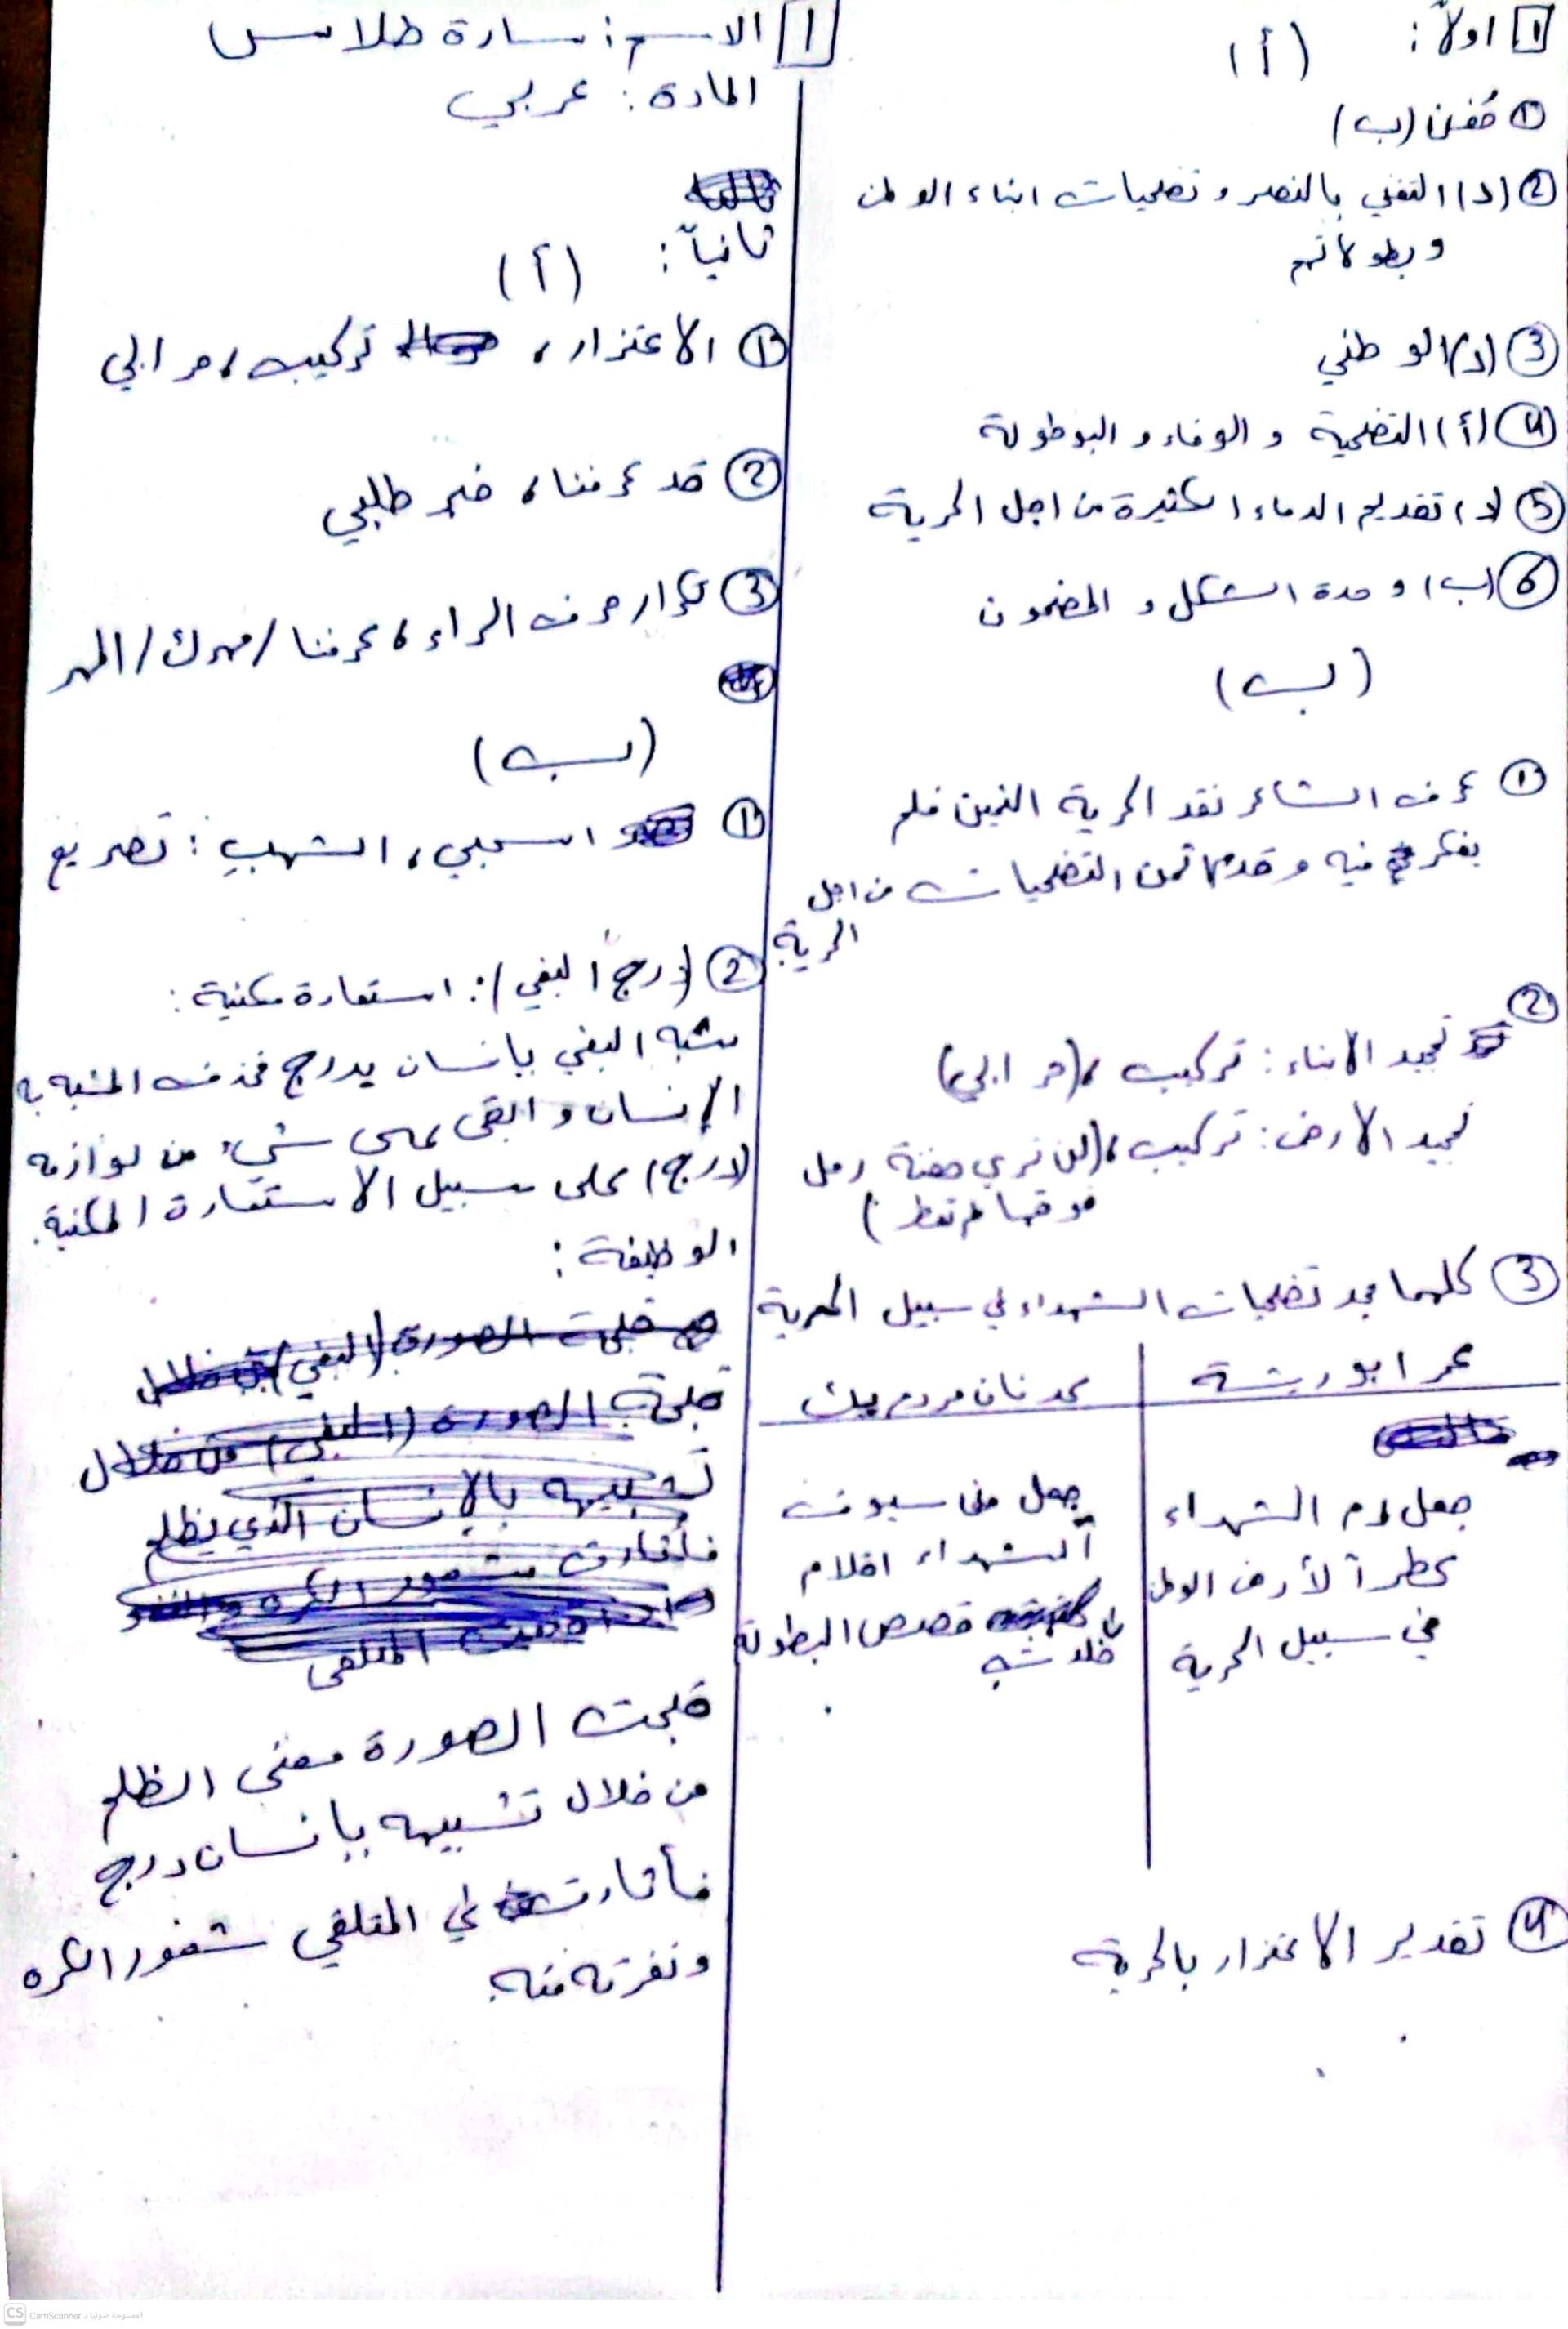 1 اولاً:
(أ)
① مُفن (ب)
② (د) التغني بالنصر و تضحيات ابناء الوطن
و بطولاتهم
③ (د) الوطني
④ (أ) التضحية و الوفاء و البوطولة
⑤ (د) تقديم الدماء الكثيرة من اجل الحرية
⑥ (ب) وحدة الشكل و المضمون
(ب)
① عرف الشاعر نقد الحرية الثمين فلم
يفكر فيه و قدم ثمن التضحيات من اجل
الحرية.
② تمجيد الأبناء: تركيب، (مر ابي)
تمجيد الأرض: تركيب، (لن تري حفنة رمل
فوقها)
③ كلهما مجد تضحيات الشهداء في سبيل الحرية
عمر ابو ريشة
عدنان مردم بيك
جعل دم الشهداء
عطراً لأرض الوطن
في سبيل الحرية
جعل من سيوف
الشهداء اقلام
قصص البطولة
④ تقدير الاعتزاز بالحرية
1 الاسم: سارة طلاس
المادة: عربي
ثانياً:
(أ)
① الاعتزار، تركيب، مر ابي
② قد عرفنا، خبر طلبي
③ تكرار حرف الراء، عرفنا/مهرك/المهر
(ب)
① اسحبي، الشهبِ: تصريع
② (درج البغي): استعارة مكنية:
شبه البغي بإنسان يدرج فحذف المشبه به
الإنسان و ابقى على شيء من لوازمه
(درج) على سبيل الاستعارة المكنية.
الوظيفة:
قبحت الصورة معنى الظلم
من خلال تشبيهه بإنسان درج
فأثارت في المتلقي شعور الكره
ونفرته منه.
CS CamScanner الممسوحة ضوئيا بـ